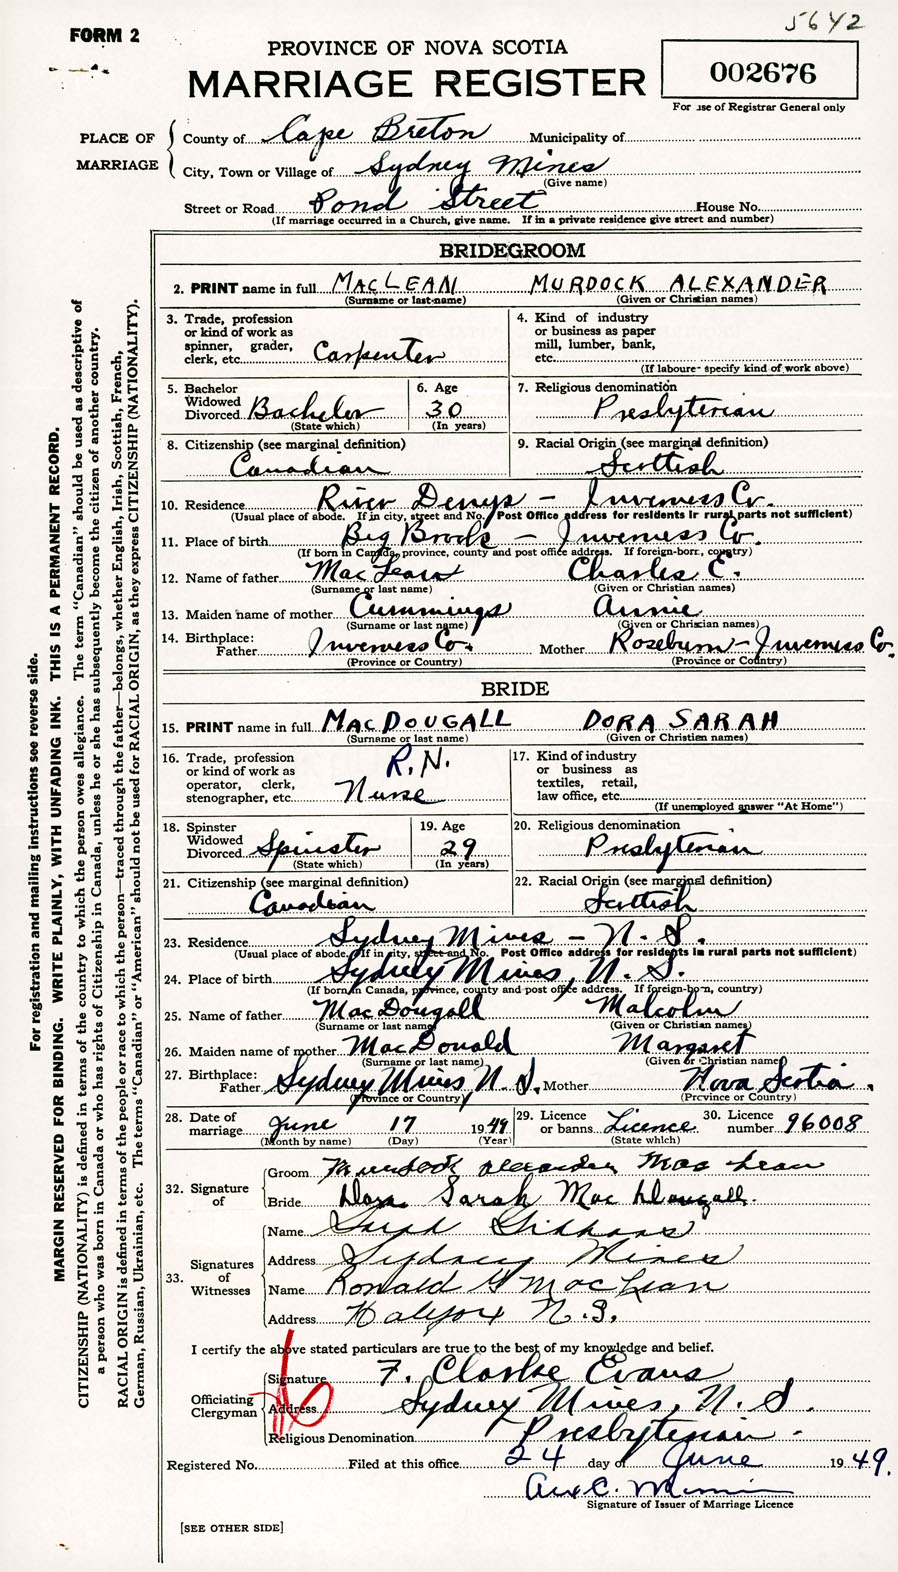 5642
FORM 2
PROVINCE OF NOVA SCOTIA
MARRIAGE REGISTER
002676
For use of Registrar General only
PLACE OF MARRIAGE
County of Cape Breton Municipality of
City, Town or Village of Sydney Mines
(Give name)
Street or Road Pond Street House No.
(If marriage occurred in a Church, give name. If in a private residence give street and number)
BRIDEGROOM
2. PRINT name in full MACLEAN MURDOCK ALEXANDER
(Surname or last-name) (Given or Christian names)
3. Trade, profession or kind of work as spinner, grader, clerk, etc. Carpenter
4. Kind of industry or business as paper mill, lumber, bank, etc.
(If labourer specify kind of work above)
5. Bachelor Widowed Divorced Bachelor
(State which)
6. Age 30
(In years)
7. Religious denomination
Presbyterian
8. Citizenship (see marginal definition)
Canadian
9. Racial Origin (see marginal definition)
Scottish
10. Residence River Denys - Inverness Co.
(Usual place of abode. If in city, street and No. Post Office address for residents in rural parts not sufficient)
11. Place of birth Big Brook - Inverness Co.
(If born in Canada, province, county and post office address. If foreign-born, country)
12. Name of father MacLean Charles E.
(Surname or last name) (Given or Christian names)
13. Maiden name of mother Cummings Annie
(Surname or last name) (Given or Christian names)
14. Birthplace: Father Inverness Co. Mother Roseburn - Inverness Co.
(Province or Country) (Province or Country)
BRIDE
15. PRINT name in full MACDOUGALL DORA SARAH
(Surname or last name) (Given or Christian names)
16. Trade, profession or kind of work as operator, clerk, stenographer, etc. R.N. Nurse
17. Kind of industry or business as textiles, retail, law office, etc.
(If unemployed answer "At Home")
18. Spinster Widowed Divorced Spinster
(State which)
19. Age 29
(In years)
20. Religious denomination
Presbyterian
21. Citizenship (see marginal definition)
Canadian
22. Racial Origin (see marginal definition)
Scottish
23. Residence Sydney Mines - N. S.
(Usual place of abode. If in city, street and No. Post Office address for residents in rural parts not sufficient)
24. Place of birth Sydney Mines, N. S.
(If born in Canada, province, county and post office address. If foreign-born, country)
25. Name of father MacDougall Malcolm
(Surname or last name) (Given or Christian names)
26. Maiden name of mother MacDonald Margaret
(Surname or last name) (Given or Christian names)
27. Birthplace: Father Sydney Mines, N. S. Mother Nova Scotia.
(Province or Country) (Province or Country)
28. Date of marriage June 17 1949
(Month by name) (Day) (Year)
29. Licence or banns Licence
(State which)
30. Licence number 96008
32. Signature of
Groom Murdock Alexander MacLean
Bride Dora Sarah MacDougall.
33. Signatures of Witnesses
Name
Address Sydney Mines
Name Ronald G MacLean
Address Halifax N.S.
I certify the above stated particulars are true to the best of my knowledge and belief.
Officiating Clergyman
Signature F. Clarke Evans
Address Sydney Mines, N. S.
Religious Denomination Presbyterian -
Registered No. Filed at this office 24 day of June 1949.
Signature of Issuer of Marriage Licence
[SEE OTHER SIDE]
For registration and mailing instructions see reverse side.
MARGIN RESERVED FOR BINDING. WRITE PLAINLY, WITH UNFADING INK. THIS IS A PERMANENT RECORD.
CITIZENSHIP (NATIONALITY) is defined in terms of the country to which the person owes allegiance. The term "Canadian" should be used as descriptive of
a person who was born in Canada or who has rights of Citizenship in Canada, unless he or she has subsequently become the citizen of another country.
RACIAL ORIGIN is defined in terms of the people or race to which the person—traced through the father—belongs, whether English, Irish, Scottish, French,
German, Russian, Ukrainian, etc. The terms "Canadian" or "American" should not be used for RACIAL ORIGIN, as they express CITIZENSHIP (NATIONALITY).